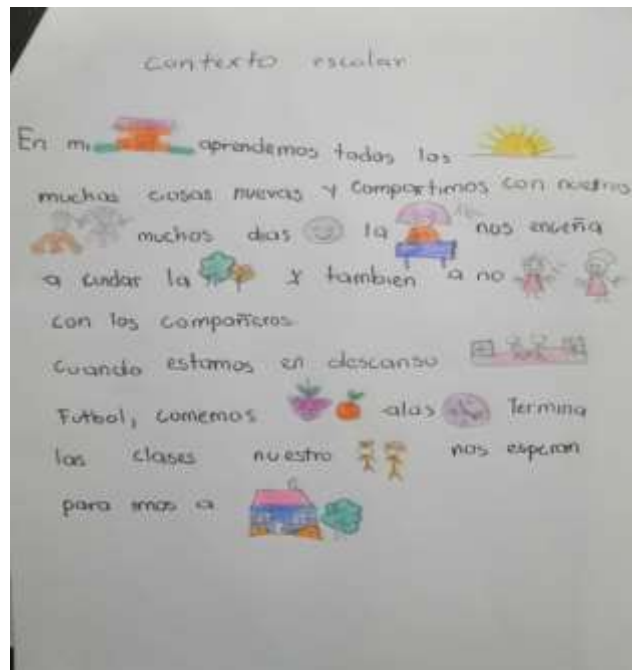 contexto escolar
En mi aprendemos todos los
muchas cosas nuevas y compartimos con nuestros
muchos dias la nos enceña
a cuidar la y tambien a no
con los compañeros
cuando estamos en descanso
Futbol, comemos alas Termina
las clases nuestro nos esperan
para irnos a